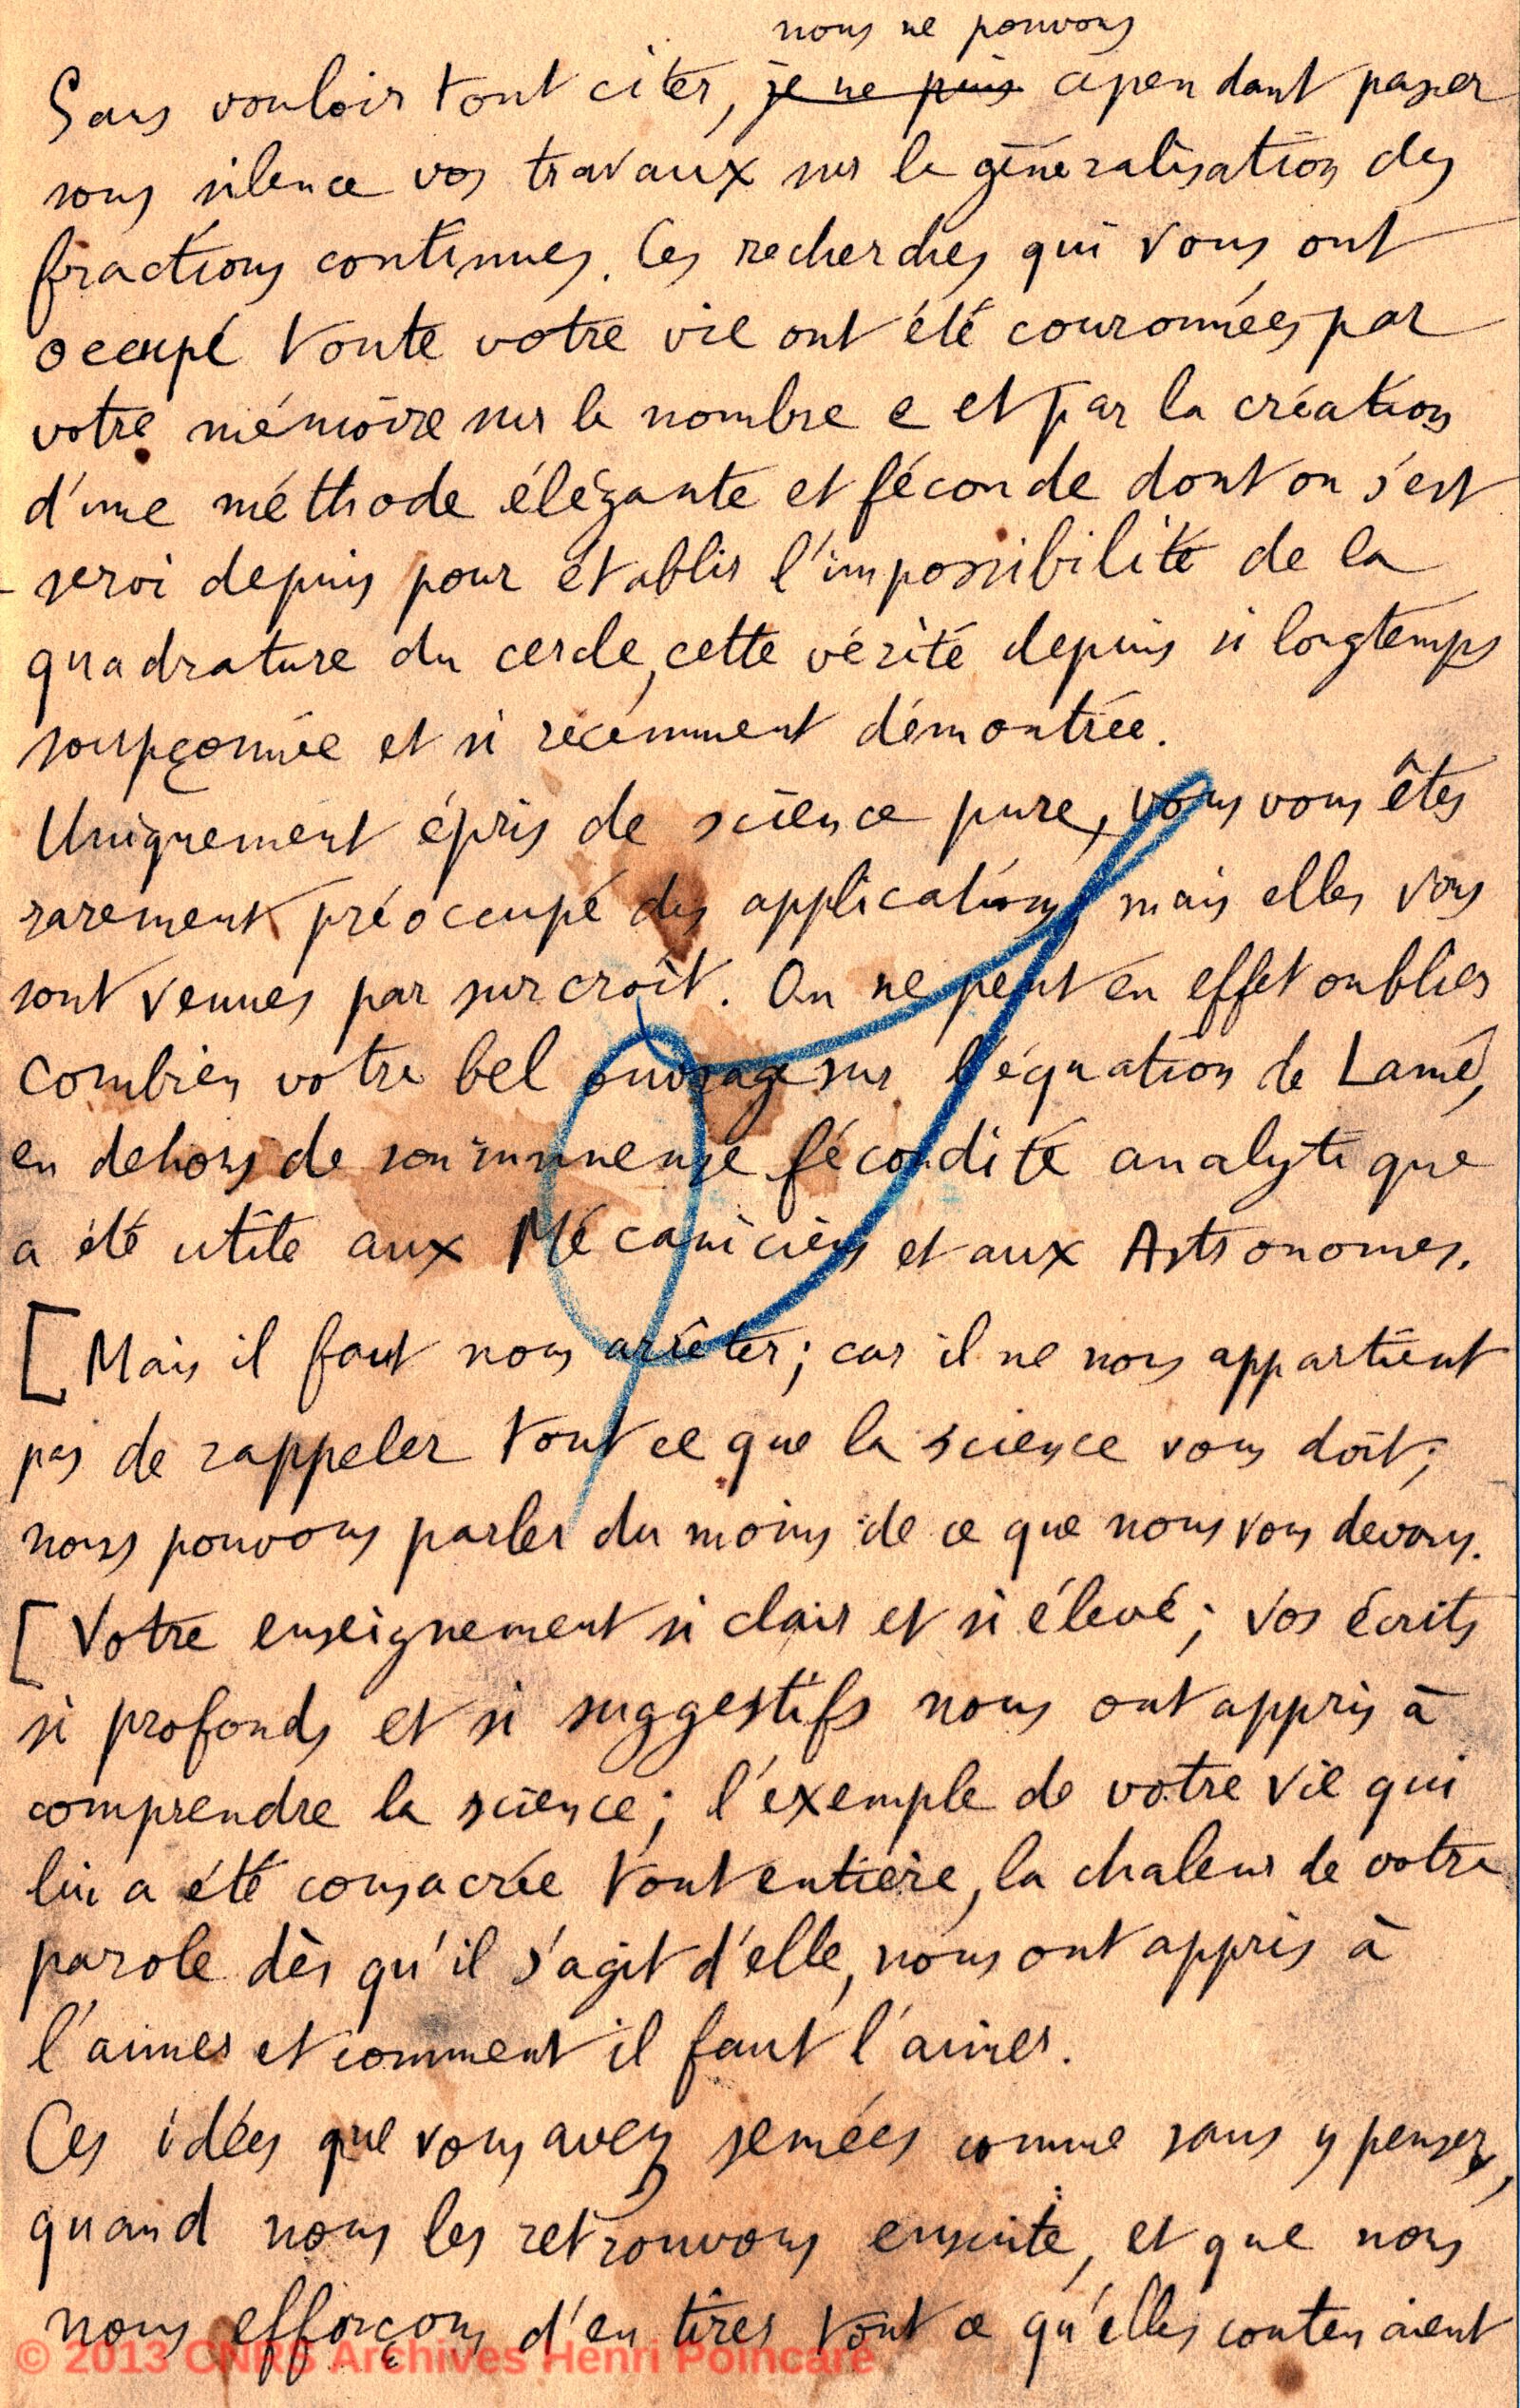 nous ne pouvons
Sans vouloir tout citer, je ne puis cependant passer
sous silence vos travaux sur la généralisation des
fractions continues. Ces recherches qui vous ont
occupé toute votre vie ont été couronnées par
votre mémoire sur le nombre e et par la création
d'une méthode élégante et féconde dont on s'est
servi depuis pour établir l'impossibilité de la
quadrature du cercle, cette vérité depuis si longtemps
soupçonnée et si récemment démontrée.
Uniquement épris de science pure, vous vous êtes
rarement préoccupé des applications mais elles vous
sont venues par surcroît. On ne peut en effet oublier
combien votre bel ouvrage sur l'équation de Lamé,
en dehors de son immense fécondité analytique
a été utile aux Mécaniciens et aux Astronomes.
[Mais il faut nous arrêter; car il ne nous appartient
pas de rappeler tout ce que la science vous doit;
nous pouvons parler du moins de ce que nous vous devons.
[Votre enseignement si clair et si élevé; vos écrits
si profonds et si suggestifs nous ont appris à
comprendre la science; l'exemple de votre vie qui
lui a été consacrée tout entière, la chaleur de votre
parole dès qu'il s'agit d'elle, nous ont appris à
l'aimer et comment il faut l'aimer.
Ces idées que vous avez semées comme sans y penser,
quand nous les retrouvons ensuite, et que nous
nous efforçons d'en tirer tout ce qu'elles contenaient
© 2013 CNRS Archives Henri Poincaré